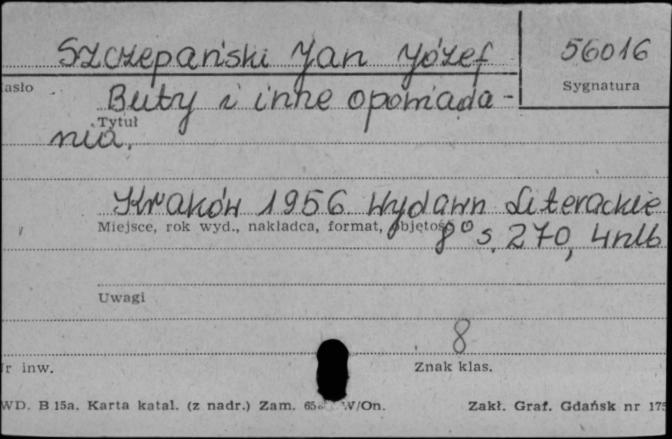 Szczepański Jan Józef 56016
asło Sygnatura
Buty i inne opowiada-
Tytuł
nia.
Kraków 1956 Wydawn Literackie
Miejsce, rok wyd., nakładca, format, objętość
8° s. 270, 4nlb
Uwagi
8
r inw. Znak klas.
WD. B 15a. Karta katal. (z nadr.) Zam. W/On. Zakł. Graf. Gdańsk nr 175